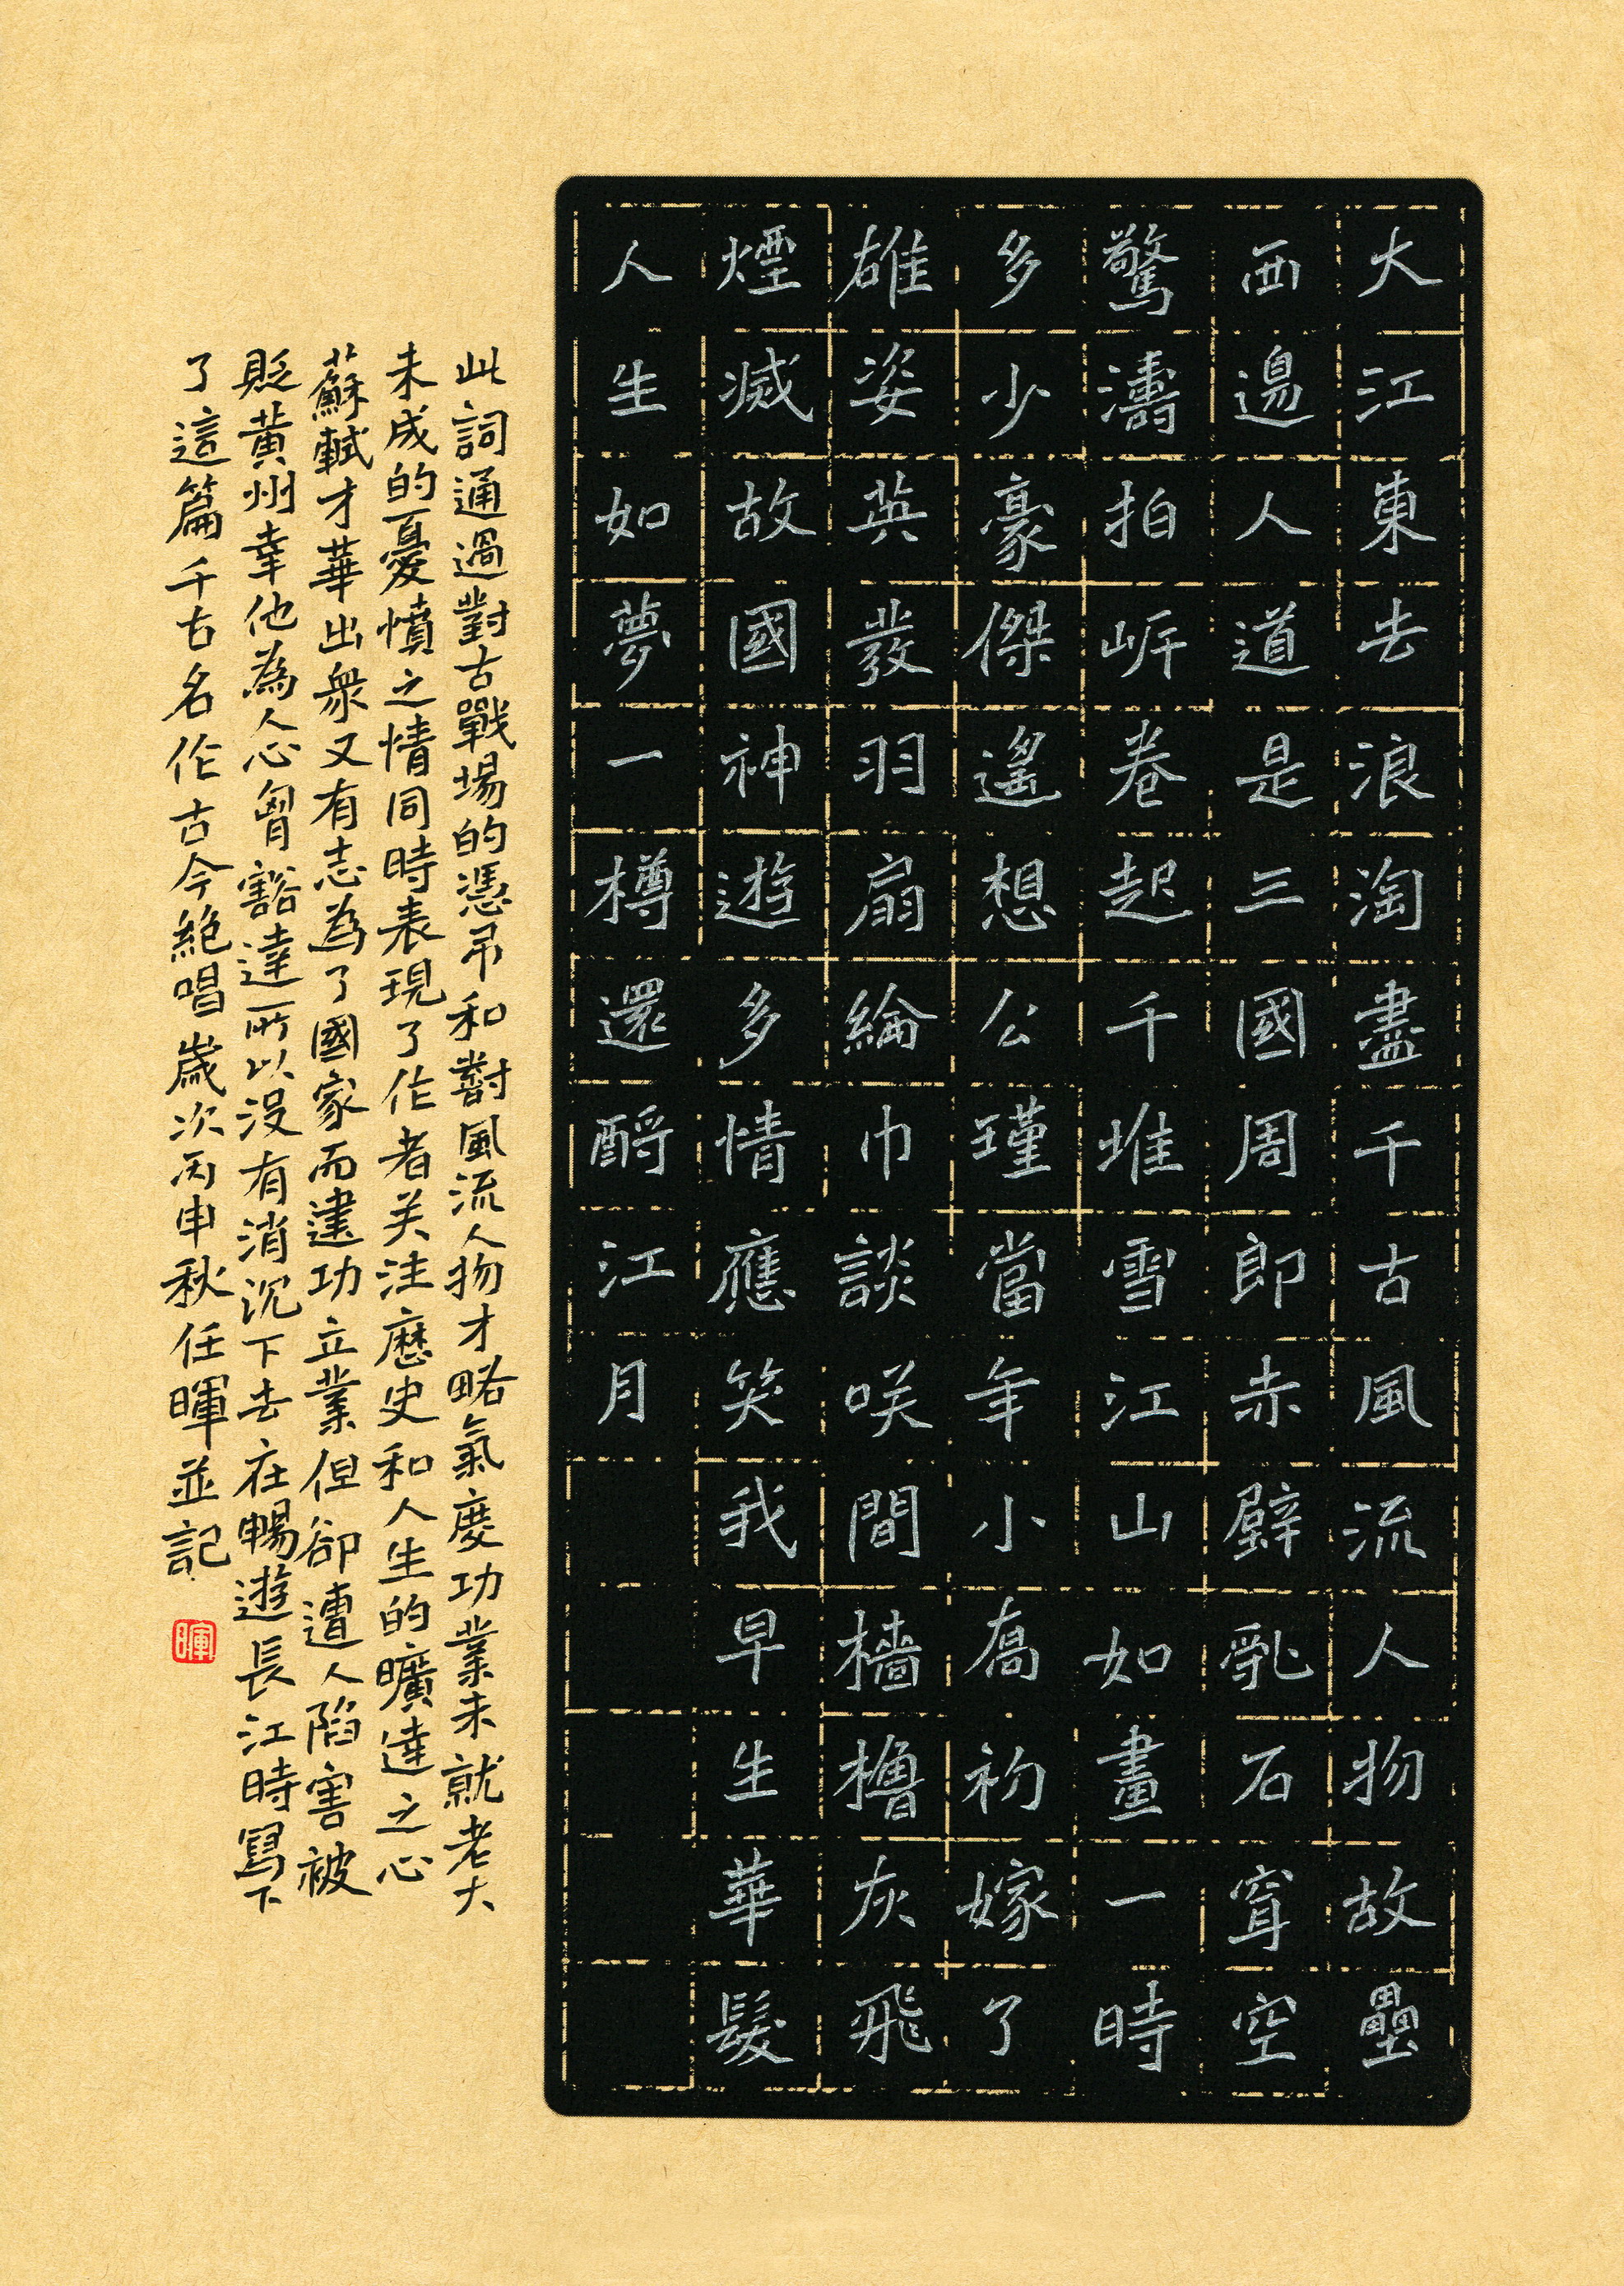 大江東去浪淘盡千古風流人物故壘
西邊人道是三國周郎赤壁亂石穿空
驚濤拍岍卷起千堆雪江山如畫一時
多少豪傑遙想公瑾當年小喬初嫁了
雄姿英發羽扇綸巾談笑間檣櫓灰飛
煙滅故國神遊多情應笑我早生華髮
人生如夢一樽還酹江月
此詞通過對古戰場的憑吊和對風流人物才略氣度功業未就老大
未成的憂憤之情同時表現了作者关注歷史和人生的曠達之心
蘇軾才華出衆又有志為了國家而建功立業但卻遭人陷害被
貶黃州幸他為人心胷豁達所以沒有消沉下去在暢遊長江時寫下
了這篇千古名作古今絕唱歲次丙申秋任暉並記
暉